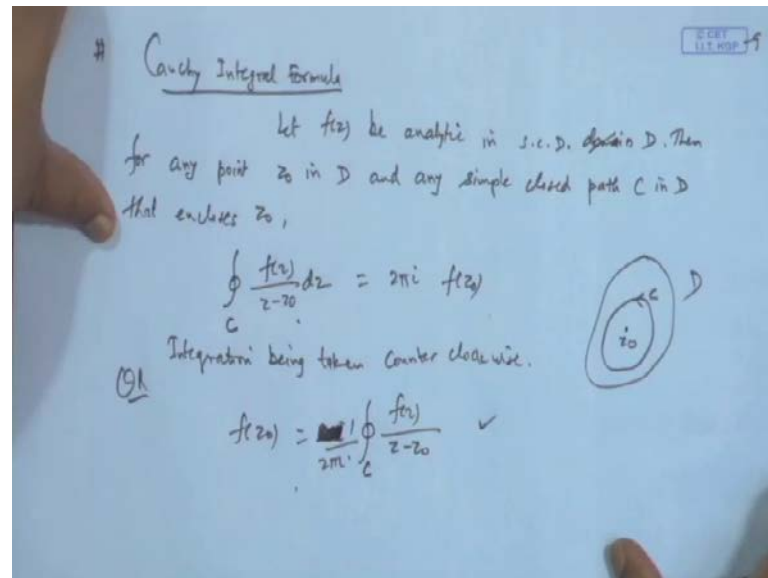 # Cauchy Integral Formula
© CET
I.I.T. KGP
Let f(z) be analytic in s.c.D. D. Then
for any point z0 in D and any simple closed path C in D
that encloses z0,
∮C f(z)/(z-z0) dz = 2πi f(z0)
C
D
z0
Integration being taken counter clockwise.
OR
f(z0) = 1/2πi ∮C f(z)/(z-z0) ✓